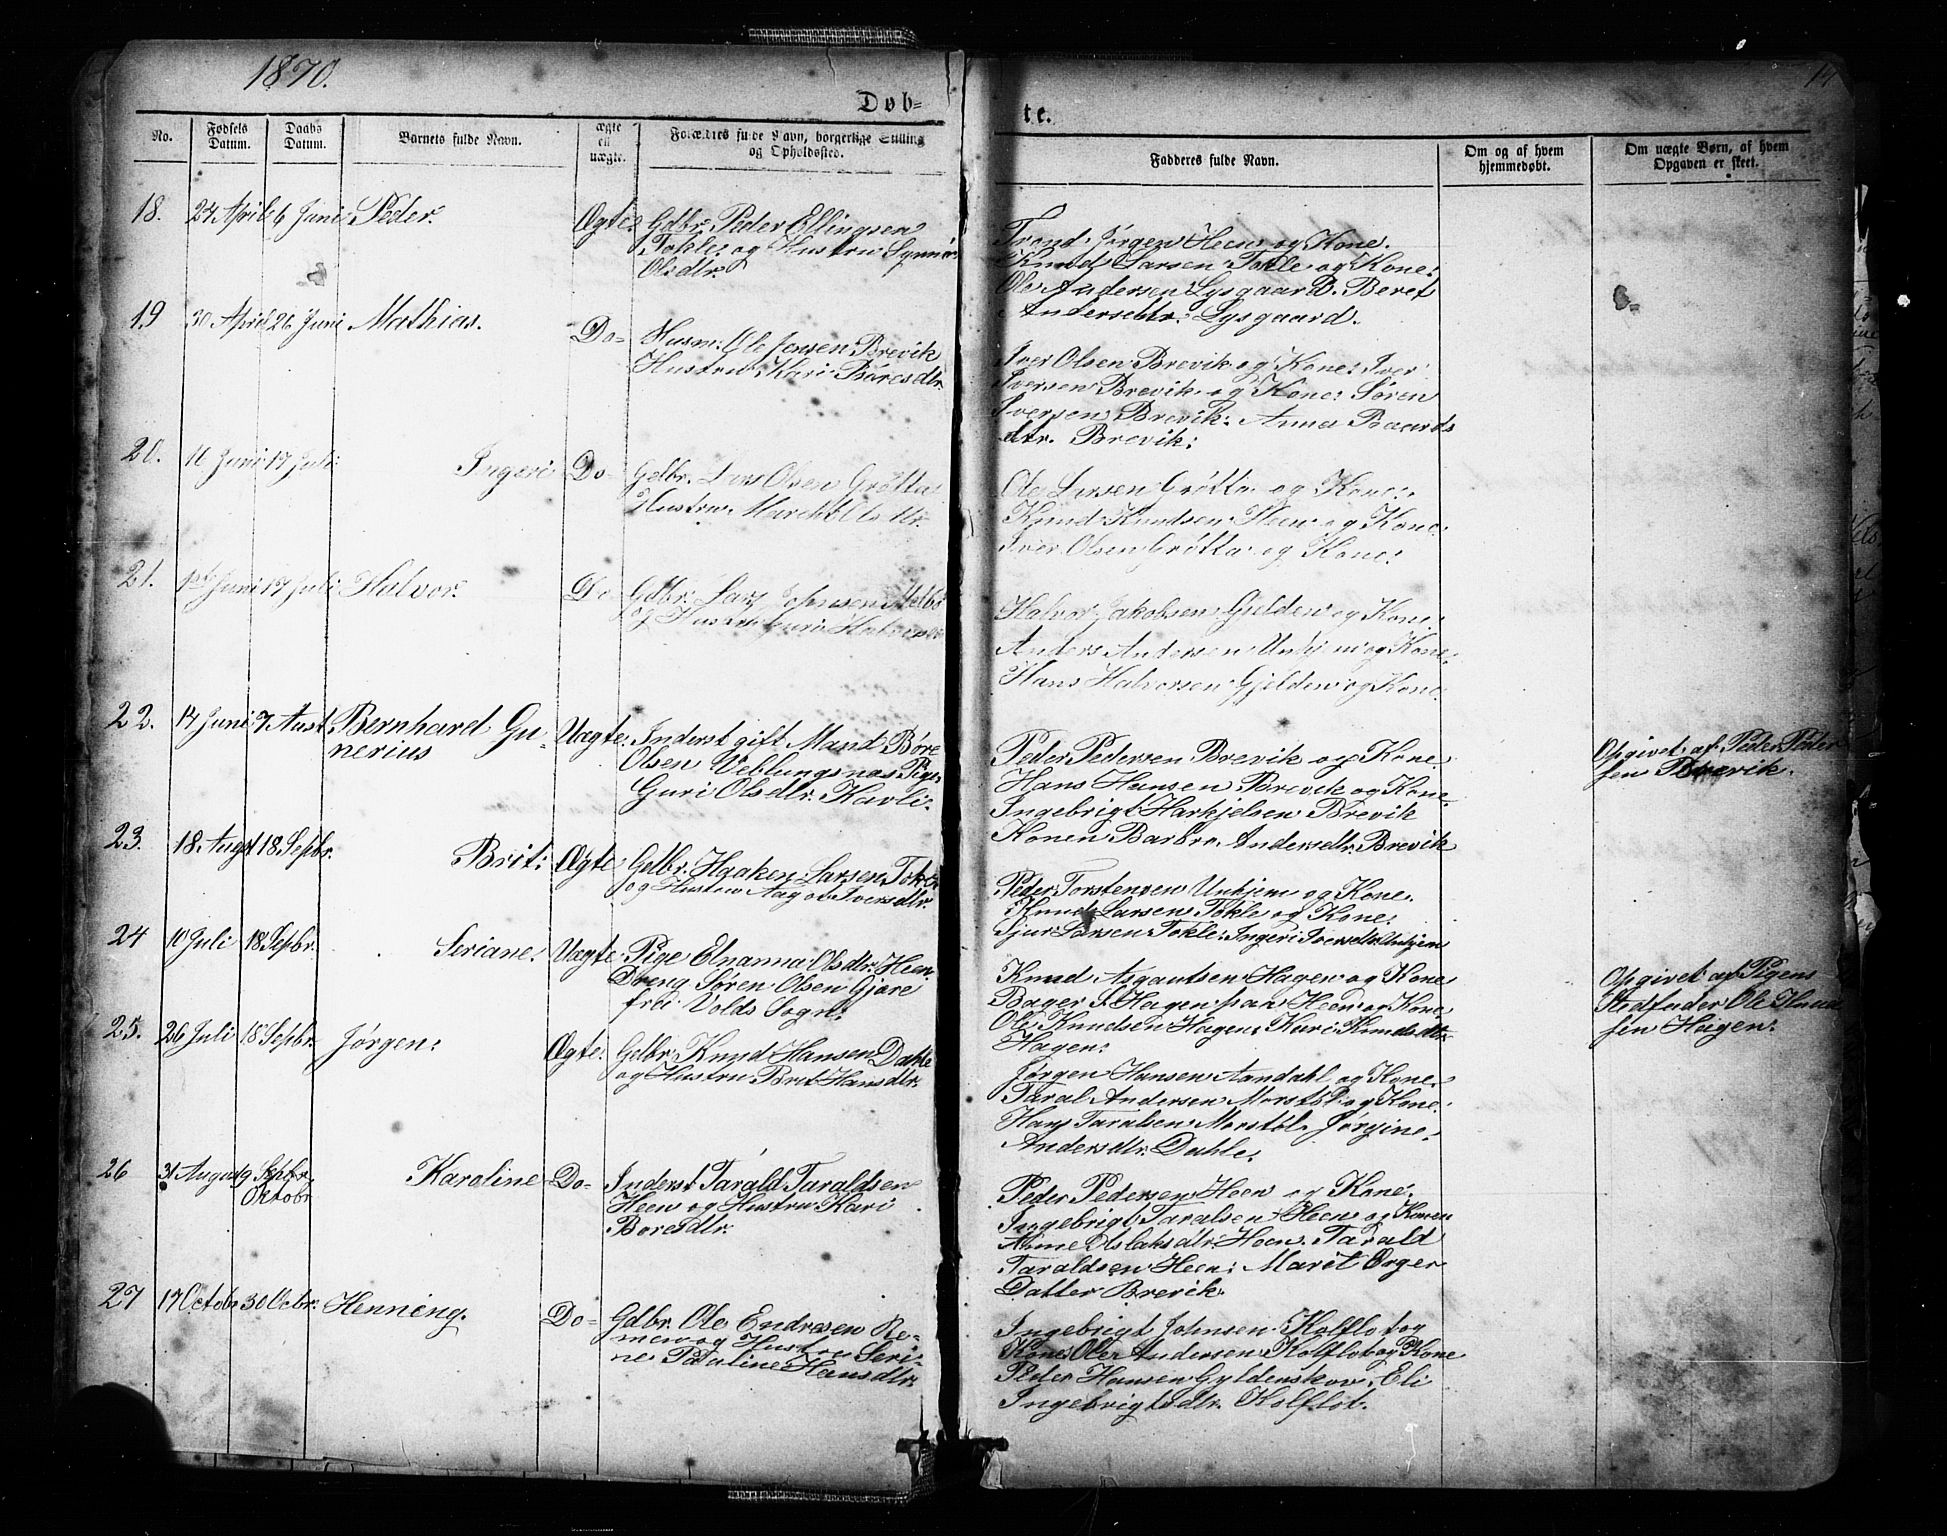 1870.
14
Døb-
te.
No.
Fødsels Datum.
Daabs Datum.
Barnets fulde Navn.
ægte ell uægte.
Forældres fulde Navn, borgerlige Stilling og Opholdssted.
Faddernes fulde Navn.
Om og af hvem hjemmedøbt.
Om uægte Børn, af hvem Opgaven er skeet.
18. 24 April 6 Juni Peder. Ægte: Gdbr: Peder Ellingsen
Tokle: og Hustru Synnør
Olsdtr.
Trond Jørgen Heen og Kone.
Knud Larsen Tokle og Kone:
Ole Andersen Lysgaard. Beret
Andersdtr: Lysgaard.
19 30 April 26 Juni Mathias. Do- Husm: Ole Jensen Brevik
Hustru Kari Børesdtr.
Iver Olsen Brevik og Kone: Iver
Iversen Brevik og Kone: Søren
Iversen Brevik: Anna Baards
dtr. Brevik:
20. 10 Juni 17 Juli Ingeri Do- Gdbr. Lars Olsen Grøtta
Hustru
Ole Larsen Grøtta og Kone:
Knud Knudsen Heen og Kone:
Iver Olsen Grøtta og Kone:
21. Juni 17 Juli Halvor. Do Gdbr: Lars Johnsen
og Hustru Guri
Halvor Jakobsen Gjelden og Kone:
Anders Andersen Unhjem og Kone:
Hans Halvorsen Gjelden og Kone:
22. 14 Juni 7 Aust Bernhard Gu-
nerius
Uægte: Inderst gift Mand Børe
Olsen Veblungsnæs Pige
Guri Olsdtr. Kavli:
Peder Pedersen Brevik og Kone.
Hans Hansen Brevik og Kone.
Ingebrigt Harkjelsen Brevik
Konen Barbro Andersdtr. Brevik
Opgivet af Peder Peder
sen Brevik.
23. 18 Augst 18 Sepbr. Brit: Ægte Gdbr. Haaken Larsen Tokle
og Hustru Aagot Iversdtr.
Peder Torstensen Unhjem og Kone.
Knud Larsen Tokle og Kone.
Sjur Larsen Tokle: Ingeri Iversdtr Unhjem
24 10 Juli 18 Sepbr. Seriane: Uægte: Pige Elnanna Olsdtr. Heen
Dreng Søren Olsen Gjøre
fra Volds Sogn:
Knud Asgautsen Hagen og Kone
Bager S. Hagen paa Heen og Kone
Ole Knudsen Hagen: Kari Knudsdtr
Hagen:
Opgivet af Pigens
Stedfader Ole Knud
sen Hagen:
25. 26 Juli 18 Sepbr. Jørgen: Ægte: Gdbr. Knud Hansen Dahle
og Hustru Bret Hansdtr.
Jørgen Hansen Aandahl og Kone.
Taral Andersen Morstøl og Kone.
Hans Taralsen Morstøl Jørgine.
Andersdtr. Dahle:
26 31 August 9 Sepbr.
Oktobr
Karoline Do- Inderst Tarald Taraldsen
Heen og Hustru Kari
Boresdtr.
Peder Pedersen Heen og Kone.
Ingebrigt Taralsen Heen og Konen
Anne Aslaksdtr: Heen. Tarald
Taraldsen Heen: Marit Ørger
Datter Brevik.
27 17 Octobr 30 Ocbr: Henning. Do- Gdbr. Ole Endresen Re-
men og Hustru Seri-
ne Pauline Hansdtr.
Ingebrigt Johnsen Kolflot og
Kone: Ole Andersen Kolflot og Kone
Peder Hansen Gyldenskov. Eli
Ingebrigtsdtr. Kolflot.